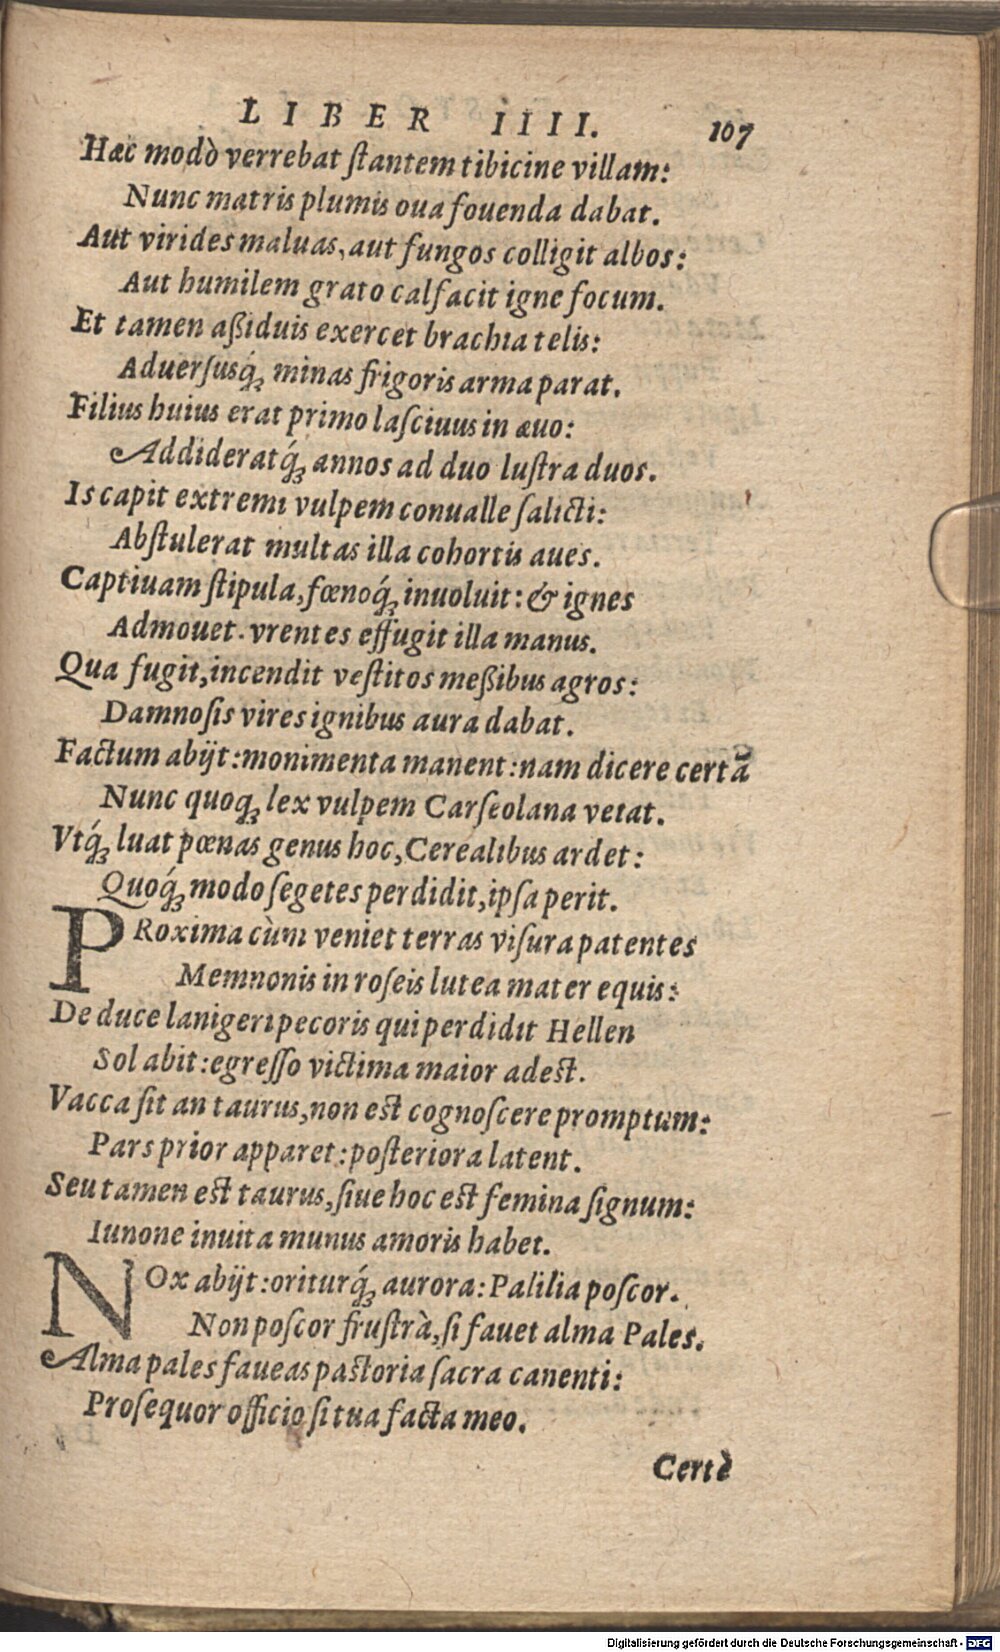 LIBER IIII. 107
Hæc modò verrebat ſtantem tibicine villam:
Nunc matris plumis oua fouenda dabat.
Aut virides maluas, aut fungos colligit albos:
Aut humilem grato calfacit igne focum.
Et tamen aßiduis exercet brachia telis:
Aduerſusq́ꝫ minas frigoris arma parat.
Filius huius erat primo laſciuus in æuo:
Addideratq́ꝫ annos ad duo luſtra duos.
Is capit extremi vulpem conualle ſalicti:
Abſtulerat multas illa cohortis aues.
Captiuam ſtipula, fœnoq́ꝫ inuoluit: & ignes
Admouet. vrentes effugit illa manus.
Qua fugit, incendit veſtitos meßibus agros:
Damnoſis vires ignibus aura dabat.
Factum abijt: monimenta manent: nam dicere certã
Nunc quoqꝫ lex vulpem Carſeolana vetat.
Vtq́ꝫ luat pœnas genus hoc, Cerealibus ardet:
Quoq́ꝫ modo ſegetes perdidit, ipſa perit.
PRoxima cùm veniet terras viſura patentes
Memnonis in roſeis lutea mater equis:
De duce lanigeri pecoris qui perdidit Hellen
Sol abit: egreſſo victima maior adest.
Vacca ſit an taurus, non est cognoſcere promptum:
Pars prior apparet: poſteriora latent.
Seu tamen est taurus, ſiue hoc est femina ſignum:
Iunone inuita munus amoris habet.
NOx abijt: oriturq́ꝫ aurora: Palilia poſcor.
Non poſcor fruſtrà, ſi fauet alma Pales.
Alma pales faueas paſtoria ſacra canenti:
Proſequor officio ſi tua facta meo.
Certè
Digitalisierung gefördert durch die Deutsche Forschungsgemeinschaft - DFG